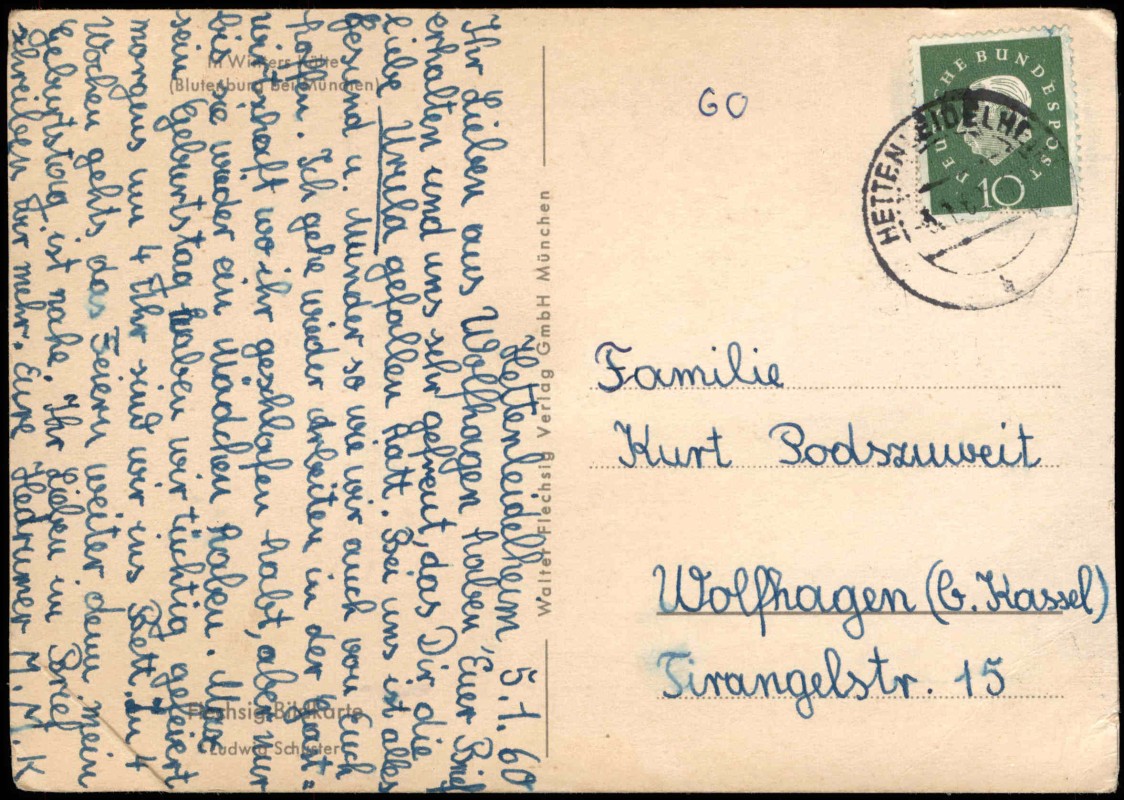 Hettenleidelheim, 5.1.60
Ihr Lieben aus Wolfhagen, haben Euer Brief
erhalten und uns sehr gefreut, das Dir, die
liebe Ursula gefallen hatt. Bei uns ist alles
gesund u. Munder so wie wir auch von Euch
hoffen. Ich gehe wieder arbeiten in der Gast=
wirtschaft wo ihr geschlafen habt, aber nur
bis sie wieder ein Mädchen haben. Mar
sein Geburtstag haben wir tüchtig gefeiert
morgens um 4 Uhr sind wir ins Bett. In 4
Wochen gehts das Feiern weiter denn mein
Geburtstag ist nahe. Ihr Lieben im Brief
schreiben wir mehr. Eure Hedrumer M. M. K
In Winters Kälte
(Blutenburg bei München)
Flechsig-Bildkarte
Ludwig Schuster
Walter Flechsig Verlag GmbH München
60
DEUTSCHE BUNDESPOST
10
HETTENLEIDELHEIM
Familie
Kurt Podszuweit
Wolfhagen (b. Kassel)
Tirangelstr. 15